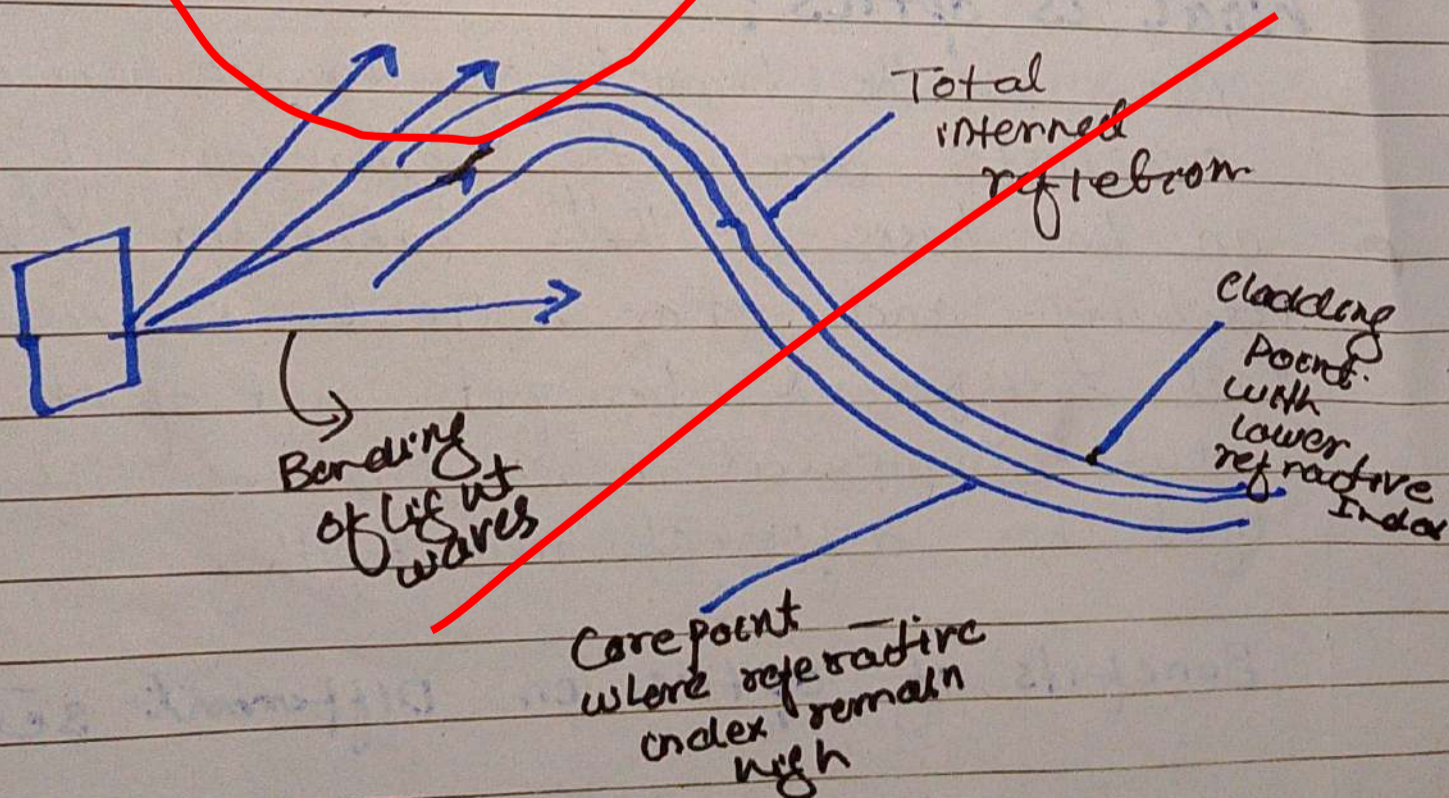 Total
internel
reflebrom
Cladding
Point
with
lower
refractive
Index
Bending
of light
waves
Core point
where referactive
index remain
high